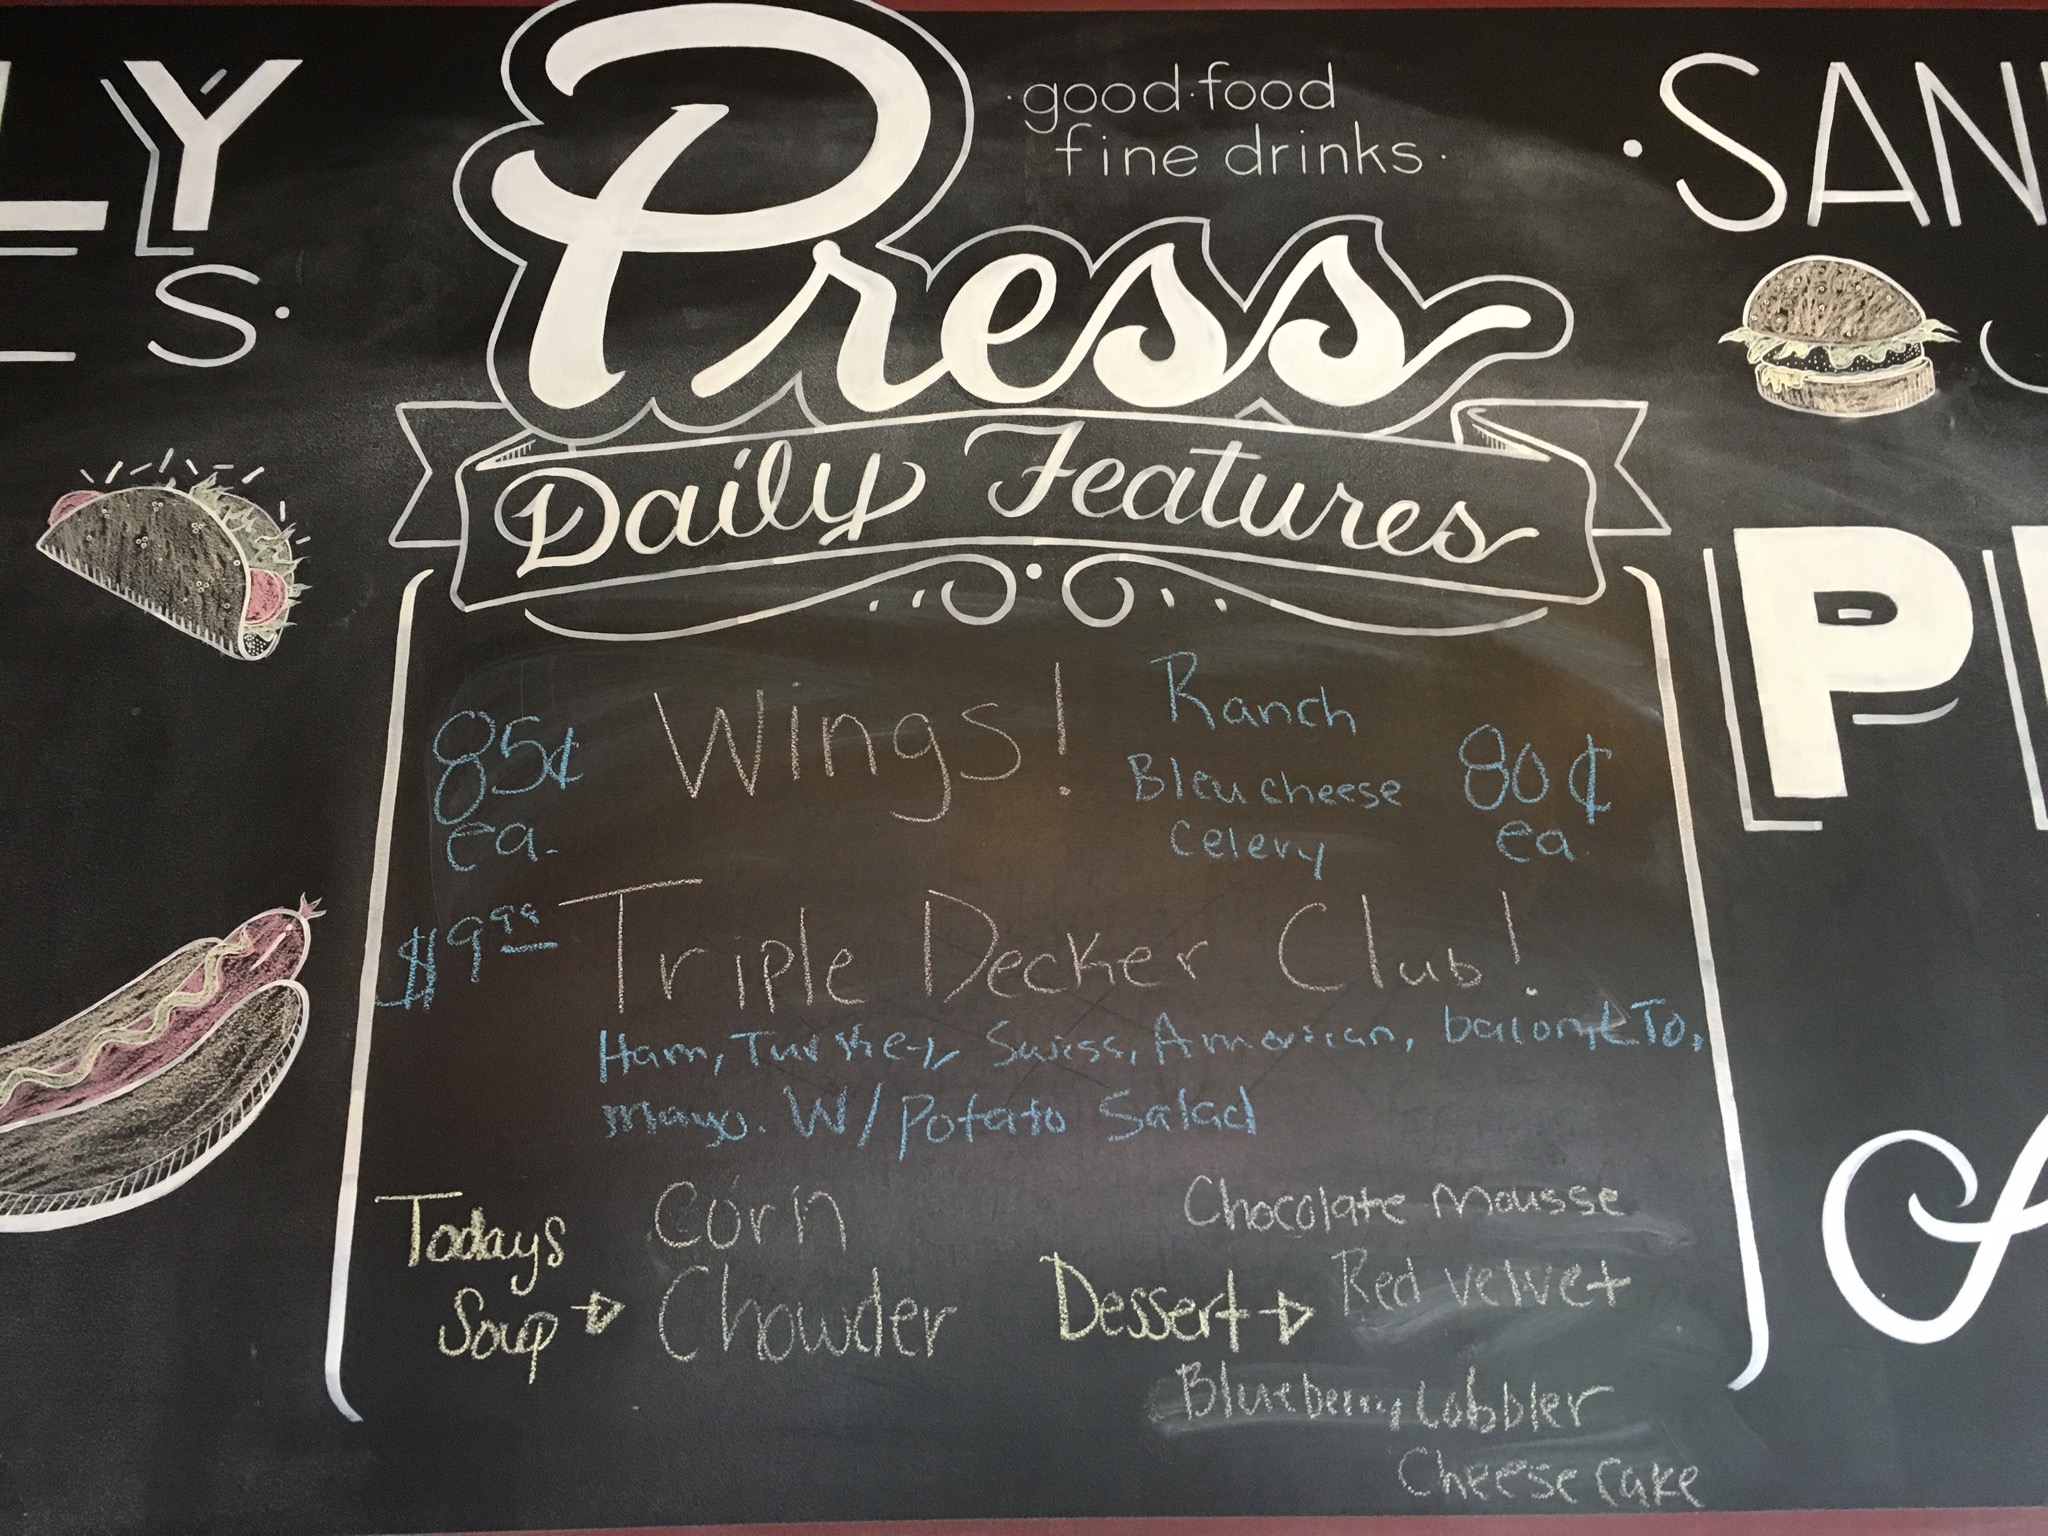 LY
S.
Press
·good·food
fine drinks·
Daily Features
·SAN
P
85¢
ea.
Wings!
Ranch
Bleu cheese
Celery
80¢
ea
$9.99
Triple Decker Club!
Ham, Turkey, Swiss, American, bacon, LTO,
mayo. W/ Potato Salad
Todays
Soup
Corn
Chowder
Dessert
Chocolate Mousse
Red velvet
Blueberry Cobbler
Cheese cake